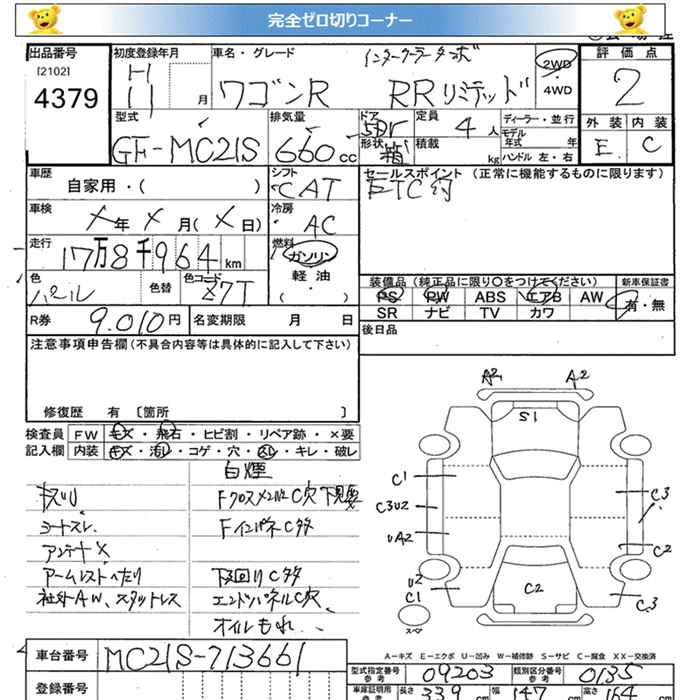 完全ゼロ切りコーナー
出品番号 初度登録年月 車名・グレード 評価点
[2102] インタークーラーターボ 2WD
4379 H11 月 ワゴンR RRリミテッド ・4WD 2
型式 排気量 ドア 定員 ディーラー・並行 外装 内装
GF-MC21S 660cc 5Dr 4人 モデル年式 年
形状 箱 積載 kg ハンドル 左・右 E C
車歴 シフト セールスポイント(正常に機能するものに限ります)
自家用・( ) CAT ETC付
車検 冷房
X年X月(X日) AC
走行 燃料
17万8千964km ガソリン
色 色替 色コード 軽油
パール Z7T ・( )
装備品(純正品に限り○をつけてください) 新車保証書
PS PW ABS エアB AW 有・無
SR ナビ TV カワ
R券 9.010円 名変期限 月 日 後日品
注意事項申告欄(不具合内容等は具体的に記入して下さい)
修復歴 有 〔箇所 〕
検査員 FW キズ・飛石・ヒビ割・リペア跡・×要
記入欄 内装 キズ・汚レ・コゲ・穴・スレ・キレ・破レ
白煙
キズ
Fクロスメンバー C穴 下見要
シートスレ
Fインパネ C多
アンテナ X
アームレストへたり 下回り C多
社外AW、スタットレス エンドパネル C穴
オイルもれ
A2 A2
S1
C1
C3U2 C3
UA2
C2
U2
C1 C2 C3
スペア
A−キズ E−エクボ U−凹み W−補修跡 S−サビ C−腐食 XX−交換済
車台番号 MC21S-713661
型式指定番号 参考 09203 類別区分番号 参考 0135
登録番号 車庫証明用 参考 長さ 339 cm 幅 147 cm 高さ 164 cm